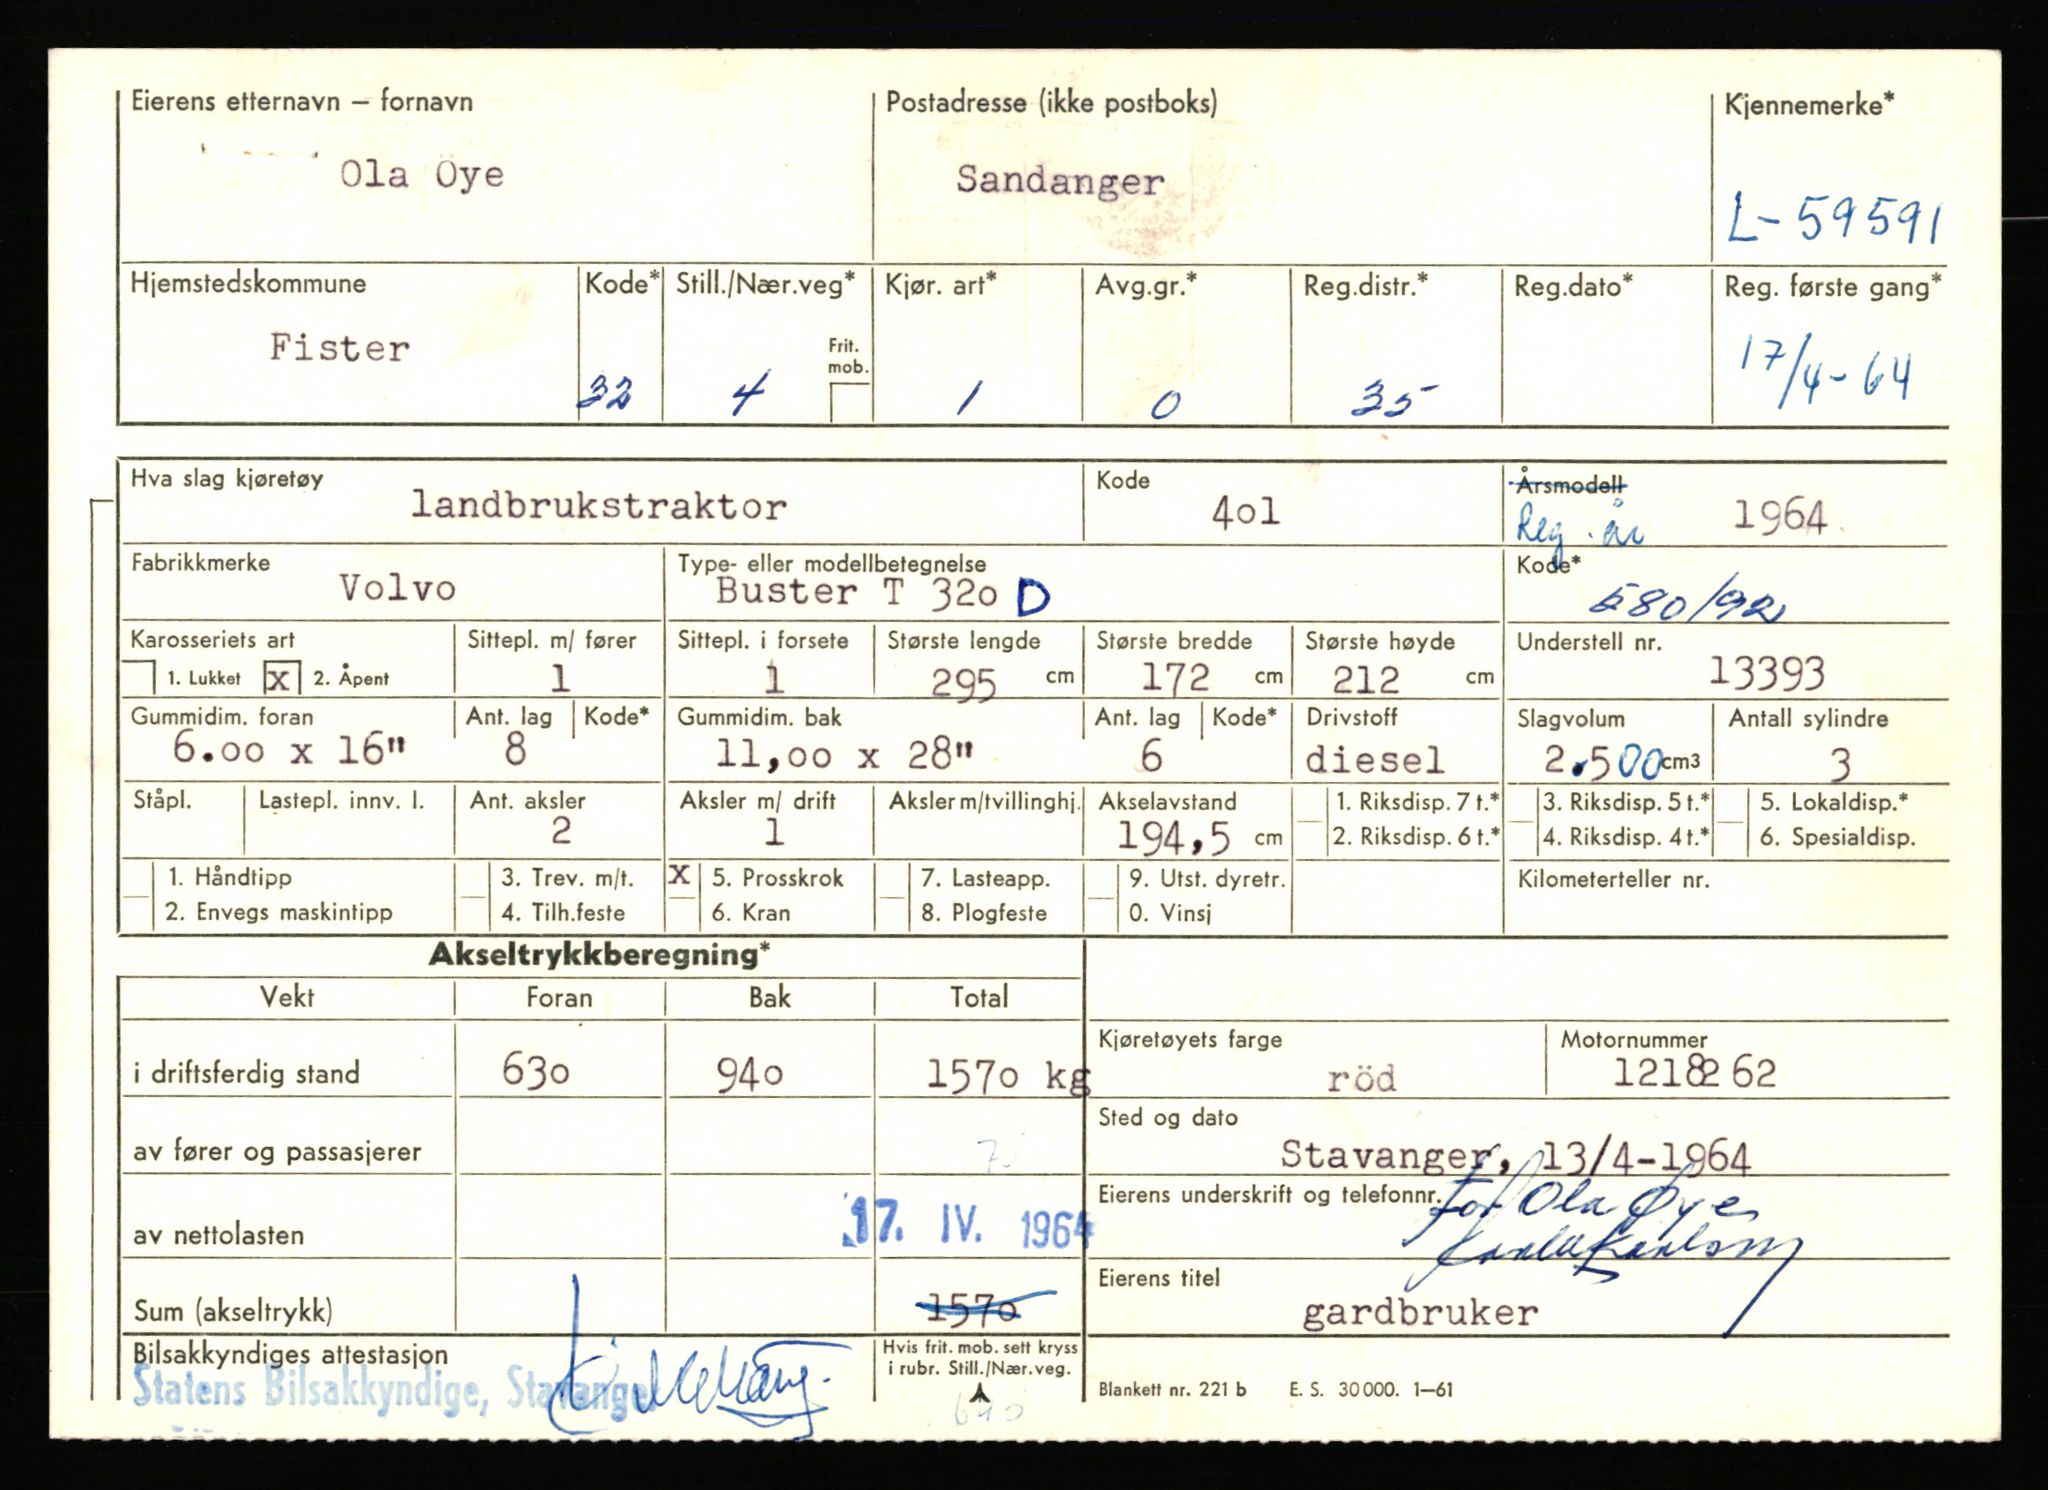 Eierens etternavn – fornavn Postadresse (ikke postboks) Kjennemerke*
Ola Öye Sandanger
L-59591
Hjemstedskommune Kode* Still./Nær.veg* Kjør. art* Avg.gr.* Reg.distr.* Reg.dato* Reg. første gang*
Fister Frit. mob. 17/4-64
32 4 1 0 35
Hva slag kjøretøy Kode Årsmodell
landbrukstraktor 401 Reg. år 1964
Fabrikkmerke Type- eller modellbetegnelse Kode*
Volvo Buster T 320 D 580/92
Karosseriets art Sittepl. m/ fører Sittepl. i forsete Største lengde Største bredde Største høyde Understell nr.
1. Lukket x 2. Åpent 1 1 295 cm 172 cm 212 cm 13393
Gummidim. foran Ant. lag Kode* Gummidim. bak Ant. lag Kode* Drivstoff Slagvolum Antall sylindre
6.00 x 16" 8 11,00 x 28" 6 diesel 2.500 cm3 3
Ståpl. Lastepl. innv. l. Ant. aksler Aksler m/ drift Aksler m/tvillinghj. Akselavstand 1. Riksdisp. 7 t.* 3. Riksdisp. 5 t.* 5. Lokaldisp.*
2 1 194,5 cm 2. Riksdisp. 6 t.* 4. Riksdisp. 4 t.* 6. Spesialdisp.
1. Håndtipp 3. Trev. m/t. x 5. Prosskrok 7. Lasteapp. 9. Utst. dyretr. Kilometerteller nr.
2. Envegs maskintipp 4. Tilh.feste 6. Kran 8. Plogfeste 0. Vinsj
Akseltrykkberegning*
Vekt Foran Bak Total
Kjøretøyets farge Motornummer
i driftsferdig stand 630 940 1570 kg röd 1218262
Sted og dato
av fører og passasjerer Stavanger, 13/4-1964
Eierens underskrift og telefonnr. for Ola Øye
av nettolasten 17. IV. 1964
Eierens titel
Sum (akseltrykk) 1570 gardbruker
Bilsakkyndiges attestasjon Hvis frit. mob. sett kryss
i rubr. Still./Nær.veg.
Statens Bilsakkyndige, Stavanger Blankett nr. 221 b E. S. 30 000. 1–61